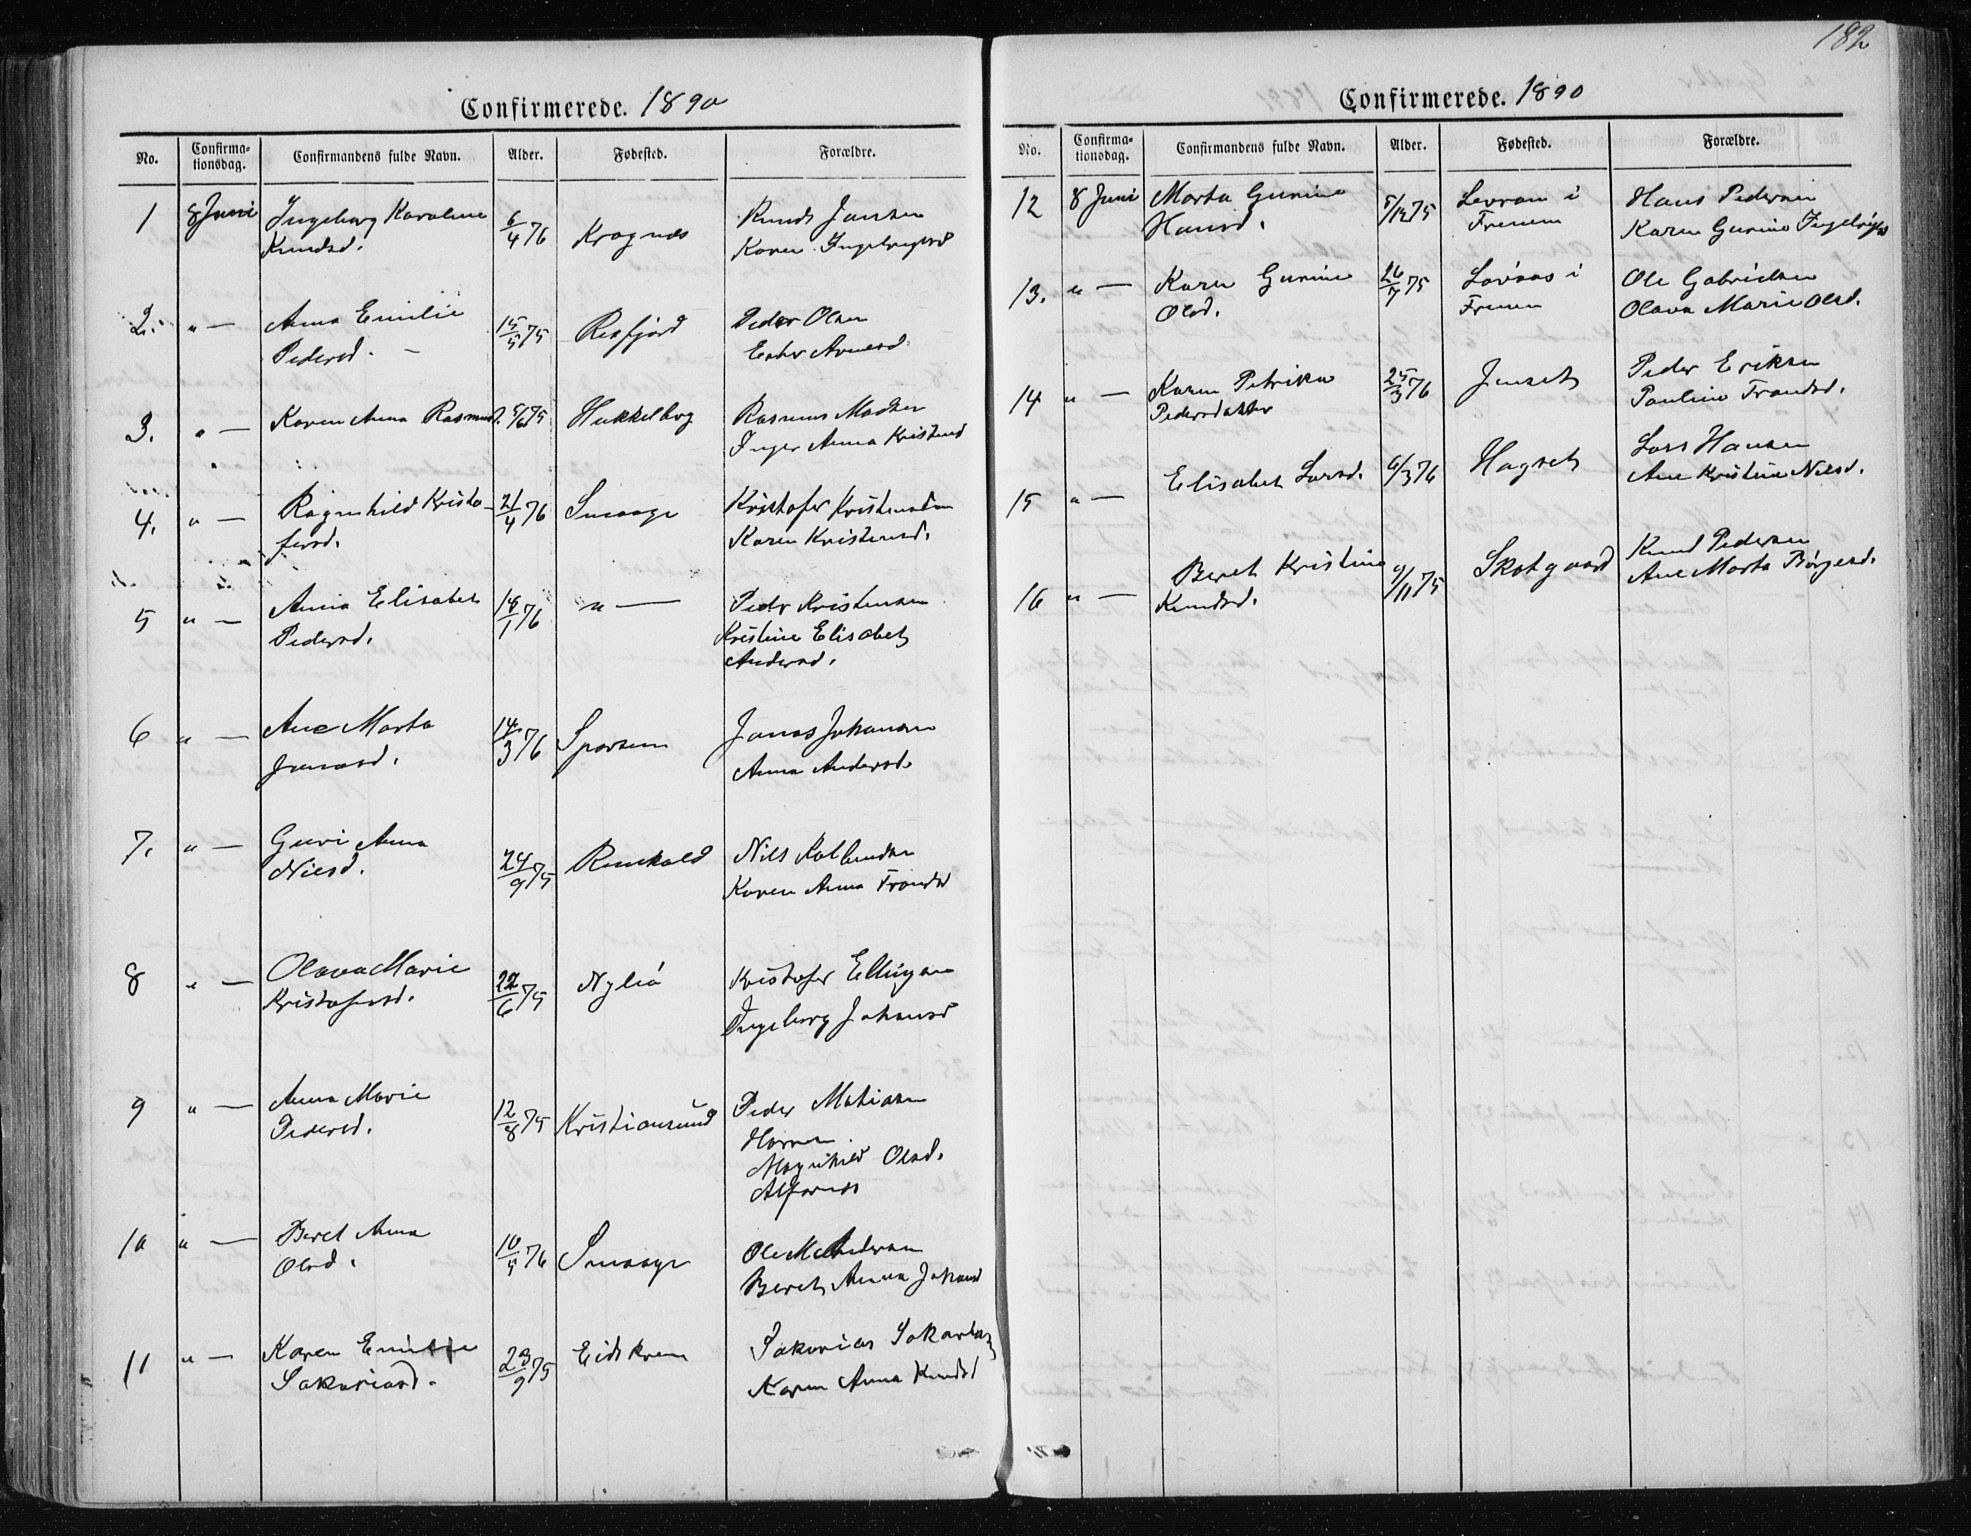 182
Confirmerede. 1890
No. Confirma-tionsdag. Confirmandens fulde Navn. Alder. Fødested. Forældre.
1 8 Juni Ingeborg Karoline 6/4 76 Kragnæs Knud Jansen
Knudsd. Karen Ingebrigtsd
2. " — Anna Emilie 15/5 75 Risfjord Peder Olsen
Pedersd. Arnesd.
3. " — Karen Anna Rasmusd. 5/6 75 Hukkelberg Rasmus Madsen
Inger Anna Kristensd
4. " — Ragnhild Kristo- 21/4 76 Smaage Kristofer Kristensen
fersd. Karen Kristensd.
5 " — Anna Elisabet 14/1 76 " — Peder Kristensen
Pedersd. Kristine Elisabet
Andersd.
6 " — Ane Marta 14/3 76 Sporsem Jonas Johansen
Jonasd. Anna Andersd.
7. " — Guri Anna 24/9 75 Nils
Nilsd. Karen Anna Trondsd
8 " — Olava Marie 22/6 75 Nylid Kristofer Ellingsen
Kristofersd. Ingeborg Johansd
9 " — Anna Marie 12/8 75 Kristiansund Peder Matiasen
Pedersd. Harnes
Magnhild Olsd.
Alfarnæs
10 " — Beret Anna 10/5 76 Smaage Ole M Andersen
Olsd. Beret Anna Johansd
11 " — Karen Emilie 23/9 75 Eidskrem Sakarias Sakariass
Sakariasd. Karen Anna Knudsd
Confirmerede. 1890
No. Confirma-tionsdag. Confirmandens fulde Navn. Alder. Fødested. Forældre.
12 8 Juni Marta Gurine 5/12 75 i Hans Pedersen
Hansd. Frenen Karen Gurine Ingebrigtsd
13. " — Karen Gurine 26/7 75 Løvaas i Ole Gabrielsen
Olsd. Frenen Olava Marie Olsd.
14 " — Karen Petrika 25/3 76 Jenset Peder Eriksen
Pedersdatter Pauline Trondsd.
15 " — Elisabet Larsd. 6/3 76 Hagset Lars Hansen
Ane Kristine Nilsd.
16 " — Beret Kristine 9/11 75 Skotgaard Knud Pedersen
Knudsd. Ane Marta Børgesd.